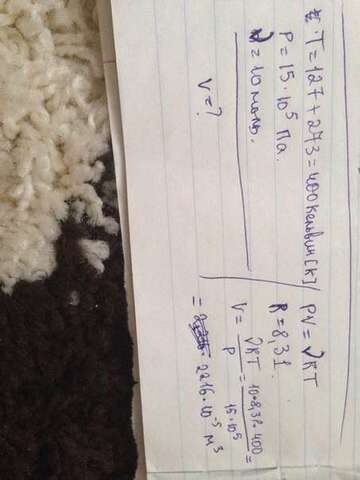 T = 127 + 273 = 400 кельвин [K]
P = 15 · 10⁵ Па.
ν = 10 моль.
V = ?
PV = νRT
R = 8,31.
V = νRT / P = 10 · 8,31 · 400 / 15 · 10⁵ =
= 2216 · 10⁻⁵ м³